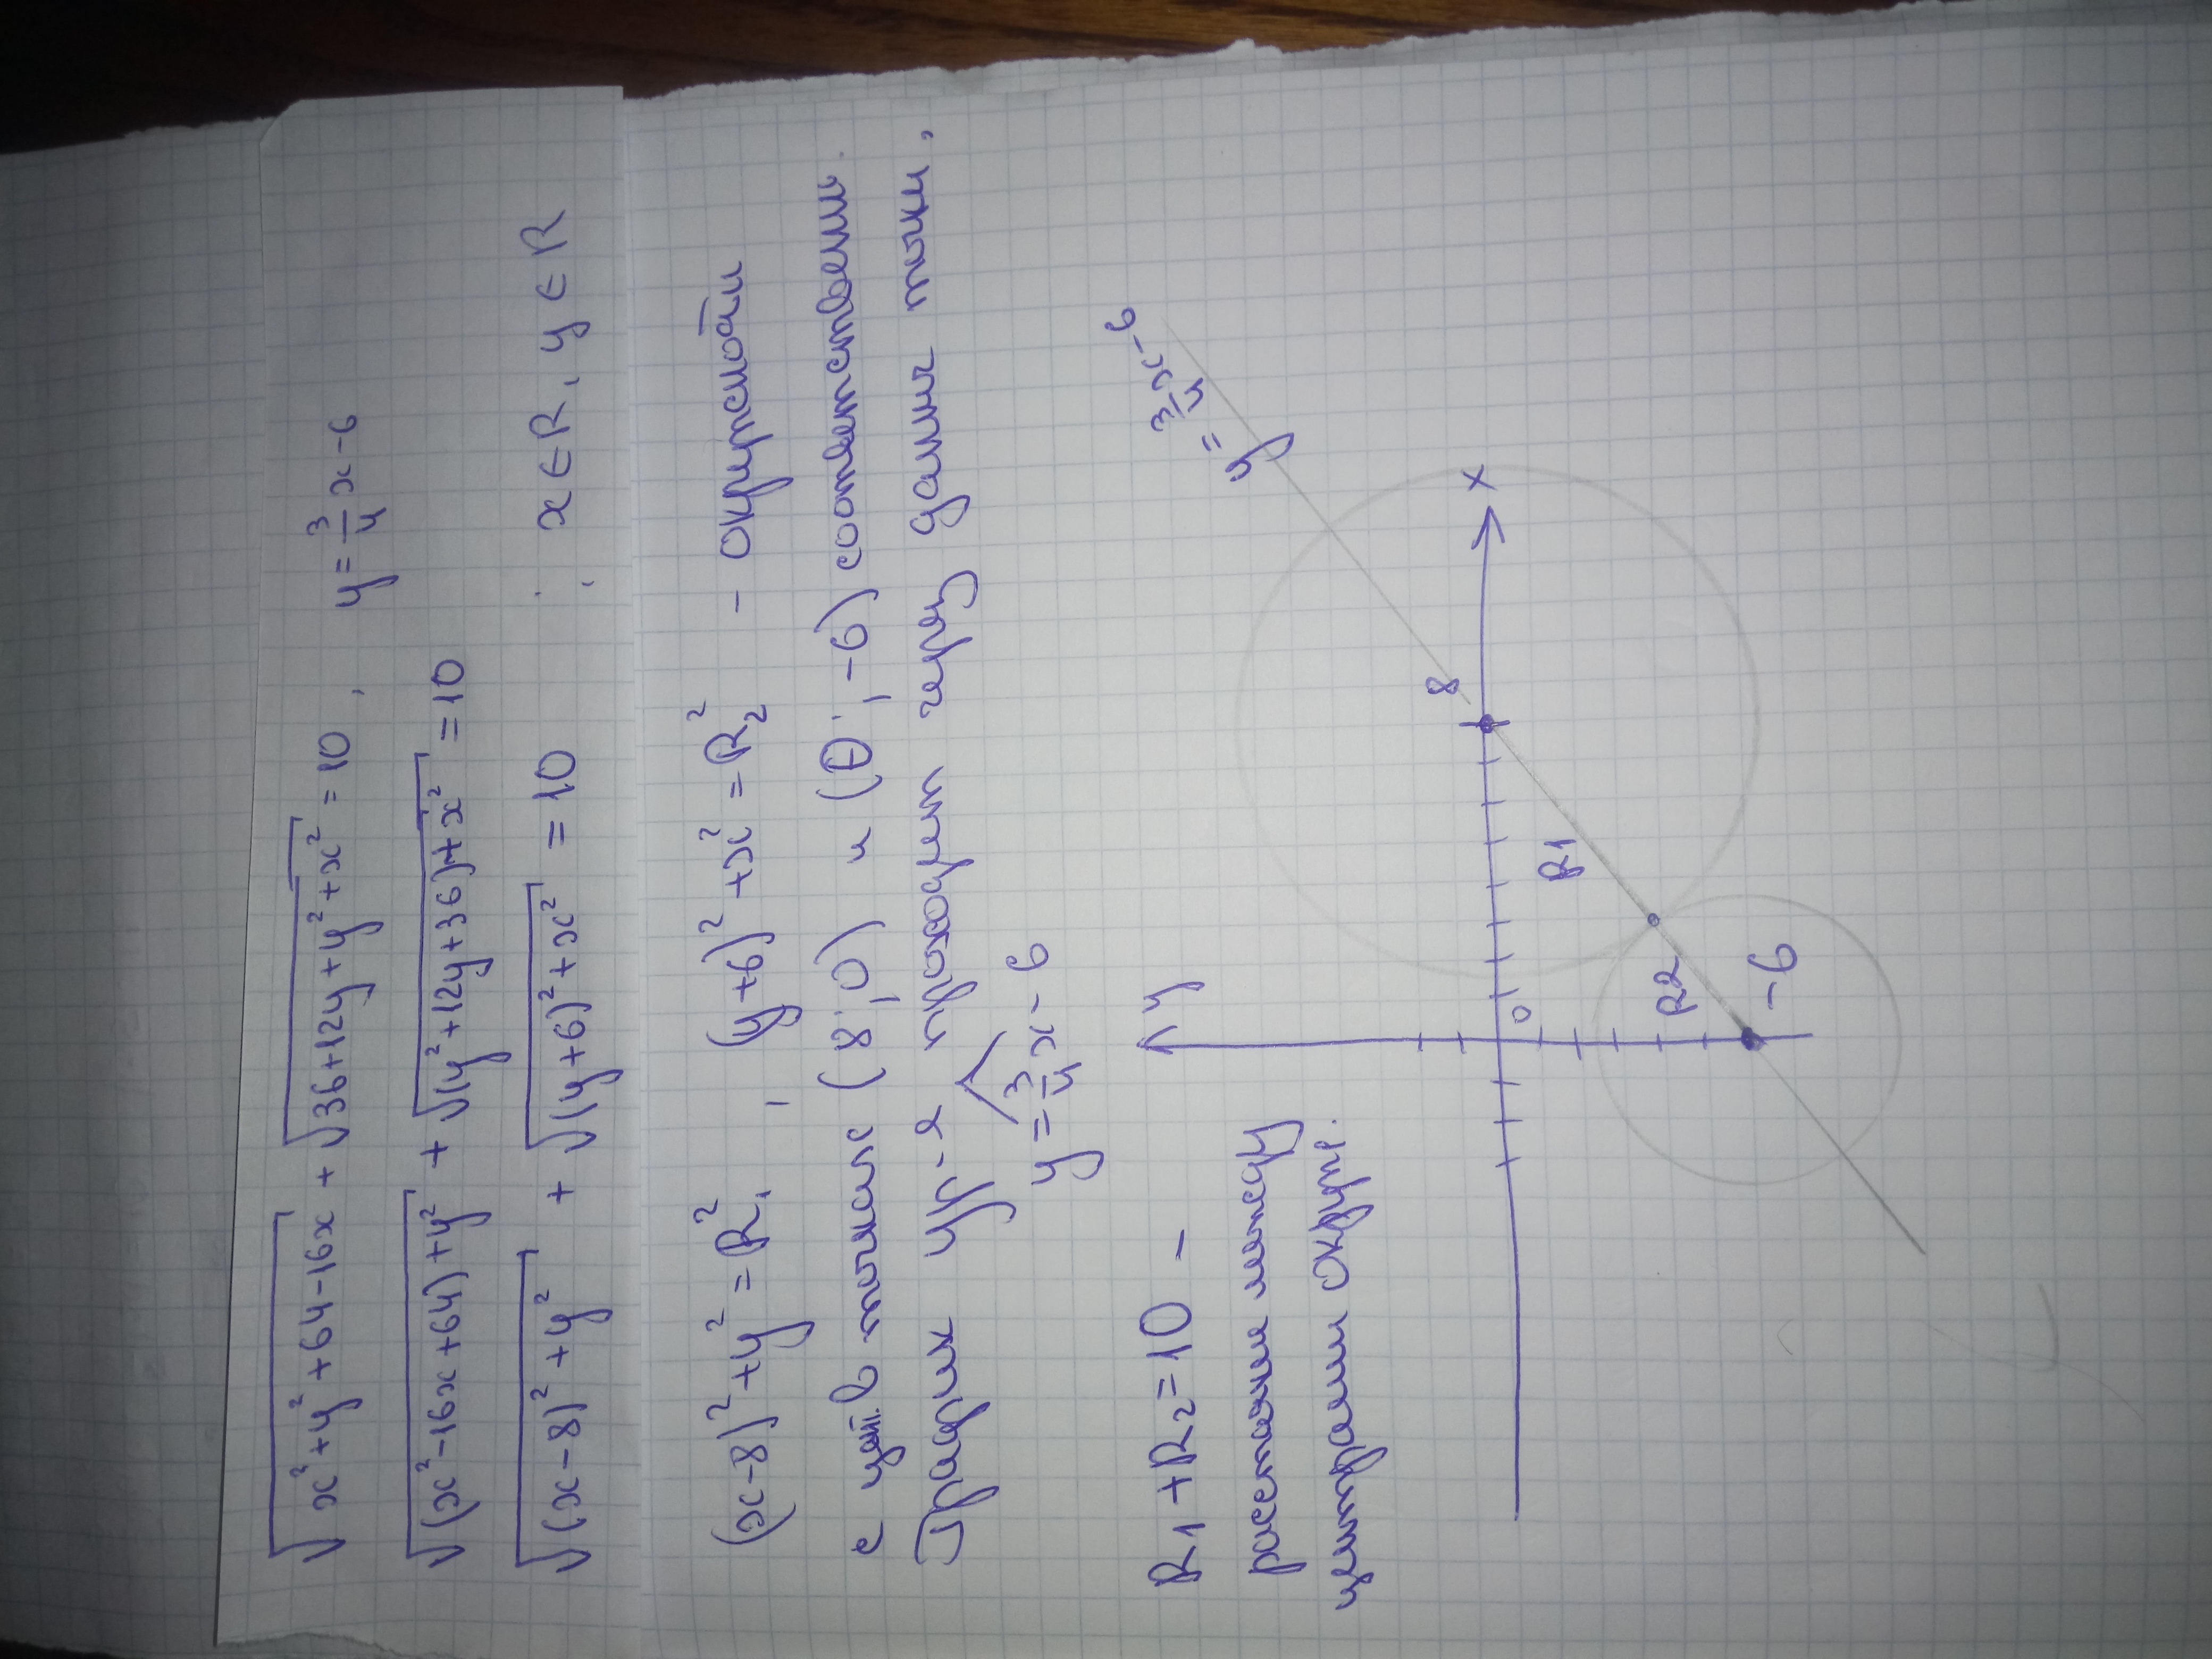 √(x²+y²+64-16x) + √(36+12y+y²+x²) = 10, y = 3/4 x - 6
√((x²-16x+64)+y²) + √((y²+12y+36)+x²) = 10
√((x-8)²+y²) + √((y+6)²+x²) = 10 ; x∈R, y∈R
(x-8)²+y² = R₁², (y+6)²+x² = R₂² - окружности
с цент. в точках (8;0) и (0;-6) соответственно.
График ур-я проходит через данные точки,
y = 3/4 x - 6
R1 + R2 = 10 -
расстояние между
центрами окруж.
y
y = 3/4 x - 6
8
x
0
R1
R2
-6